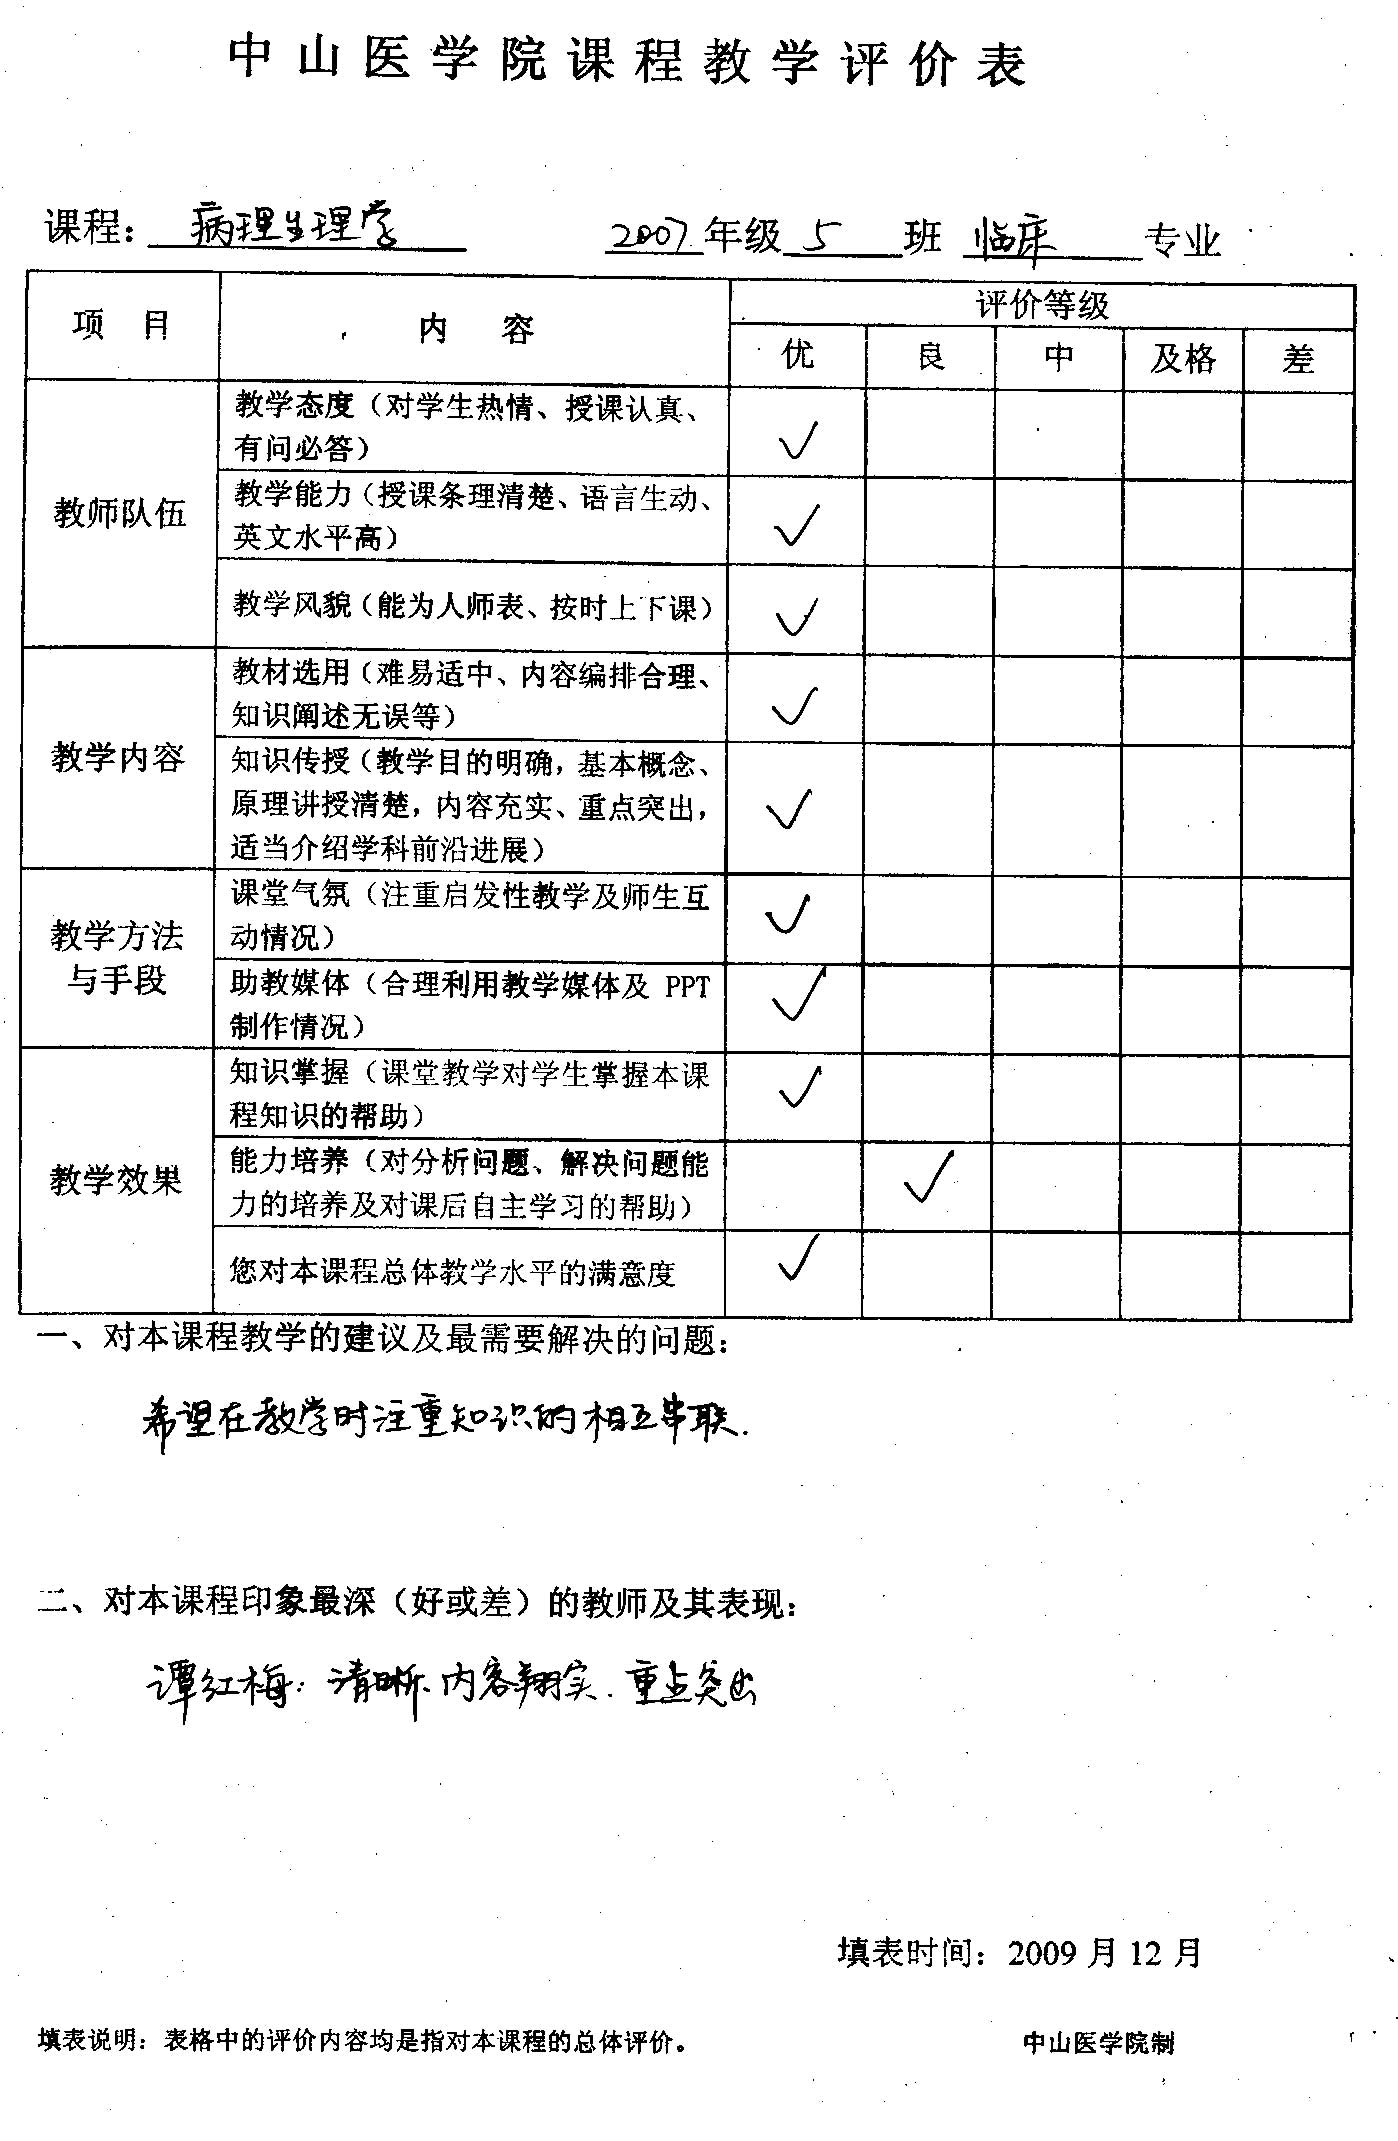 中山医学院课程教学评价表
课程：病理生理学 2007年级 5 班 临床 专业
项 目 内 容 评价等级
优 良 中 及格 差
教师队伍
教学态度（对学生热情、授课认真、
有问必答） ✓
教学能力（授课条理清楚、语言生动、
英文水平高） ✓
教学风貌（能为人师表、按时上下课） ✓
教学内容
教材选用（难易适中、内容编排合理、
知识阐述无误等） ✓
知识传授（教学目的明确，基本概念、
原理讲授清楚，内容充实、重点突出，
适当介绍学科前沿进展） ✓
教学方法
与手段
课堂气氛（注重启发性教学及师生互
动情况） ✓
助教媒体（合理利用教学媒体及 PPT
制作情况） ✓
教学效果
知识掌握（课堂教学对学生掌握本课
程知识的帮助） ✓
能力培养（对分析问题、解决问题能
力的培养及对课后自主学习的帮助） ✓
您对本课程总体教学水平的满意度 ✓
一、对本课程教学的建议及最需要解决的问题：
希望在教学时注重知识的相互串联.
二、对本课程印象最深（好或差）的教师及其表现：
谭红梅：清晰.内容翔实.重点突出
填表时间：2009 月 12 月
填表说明：表格中的评价内容均是指对本课程的总体评价。 中山医学院制